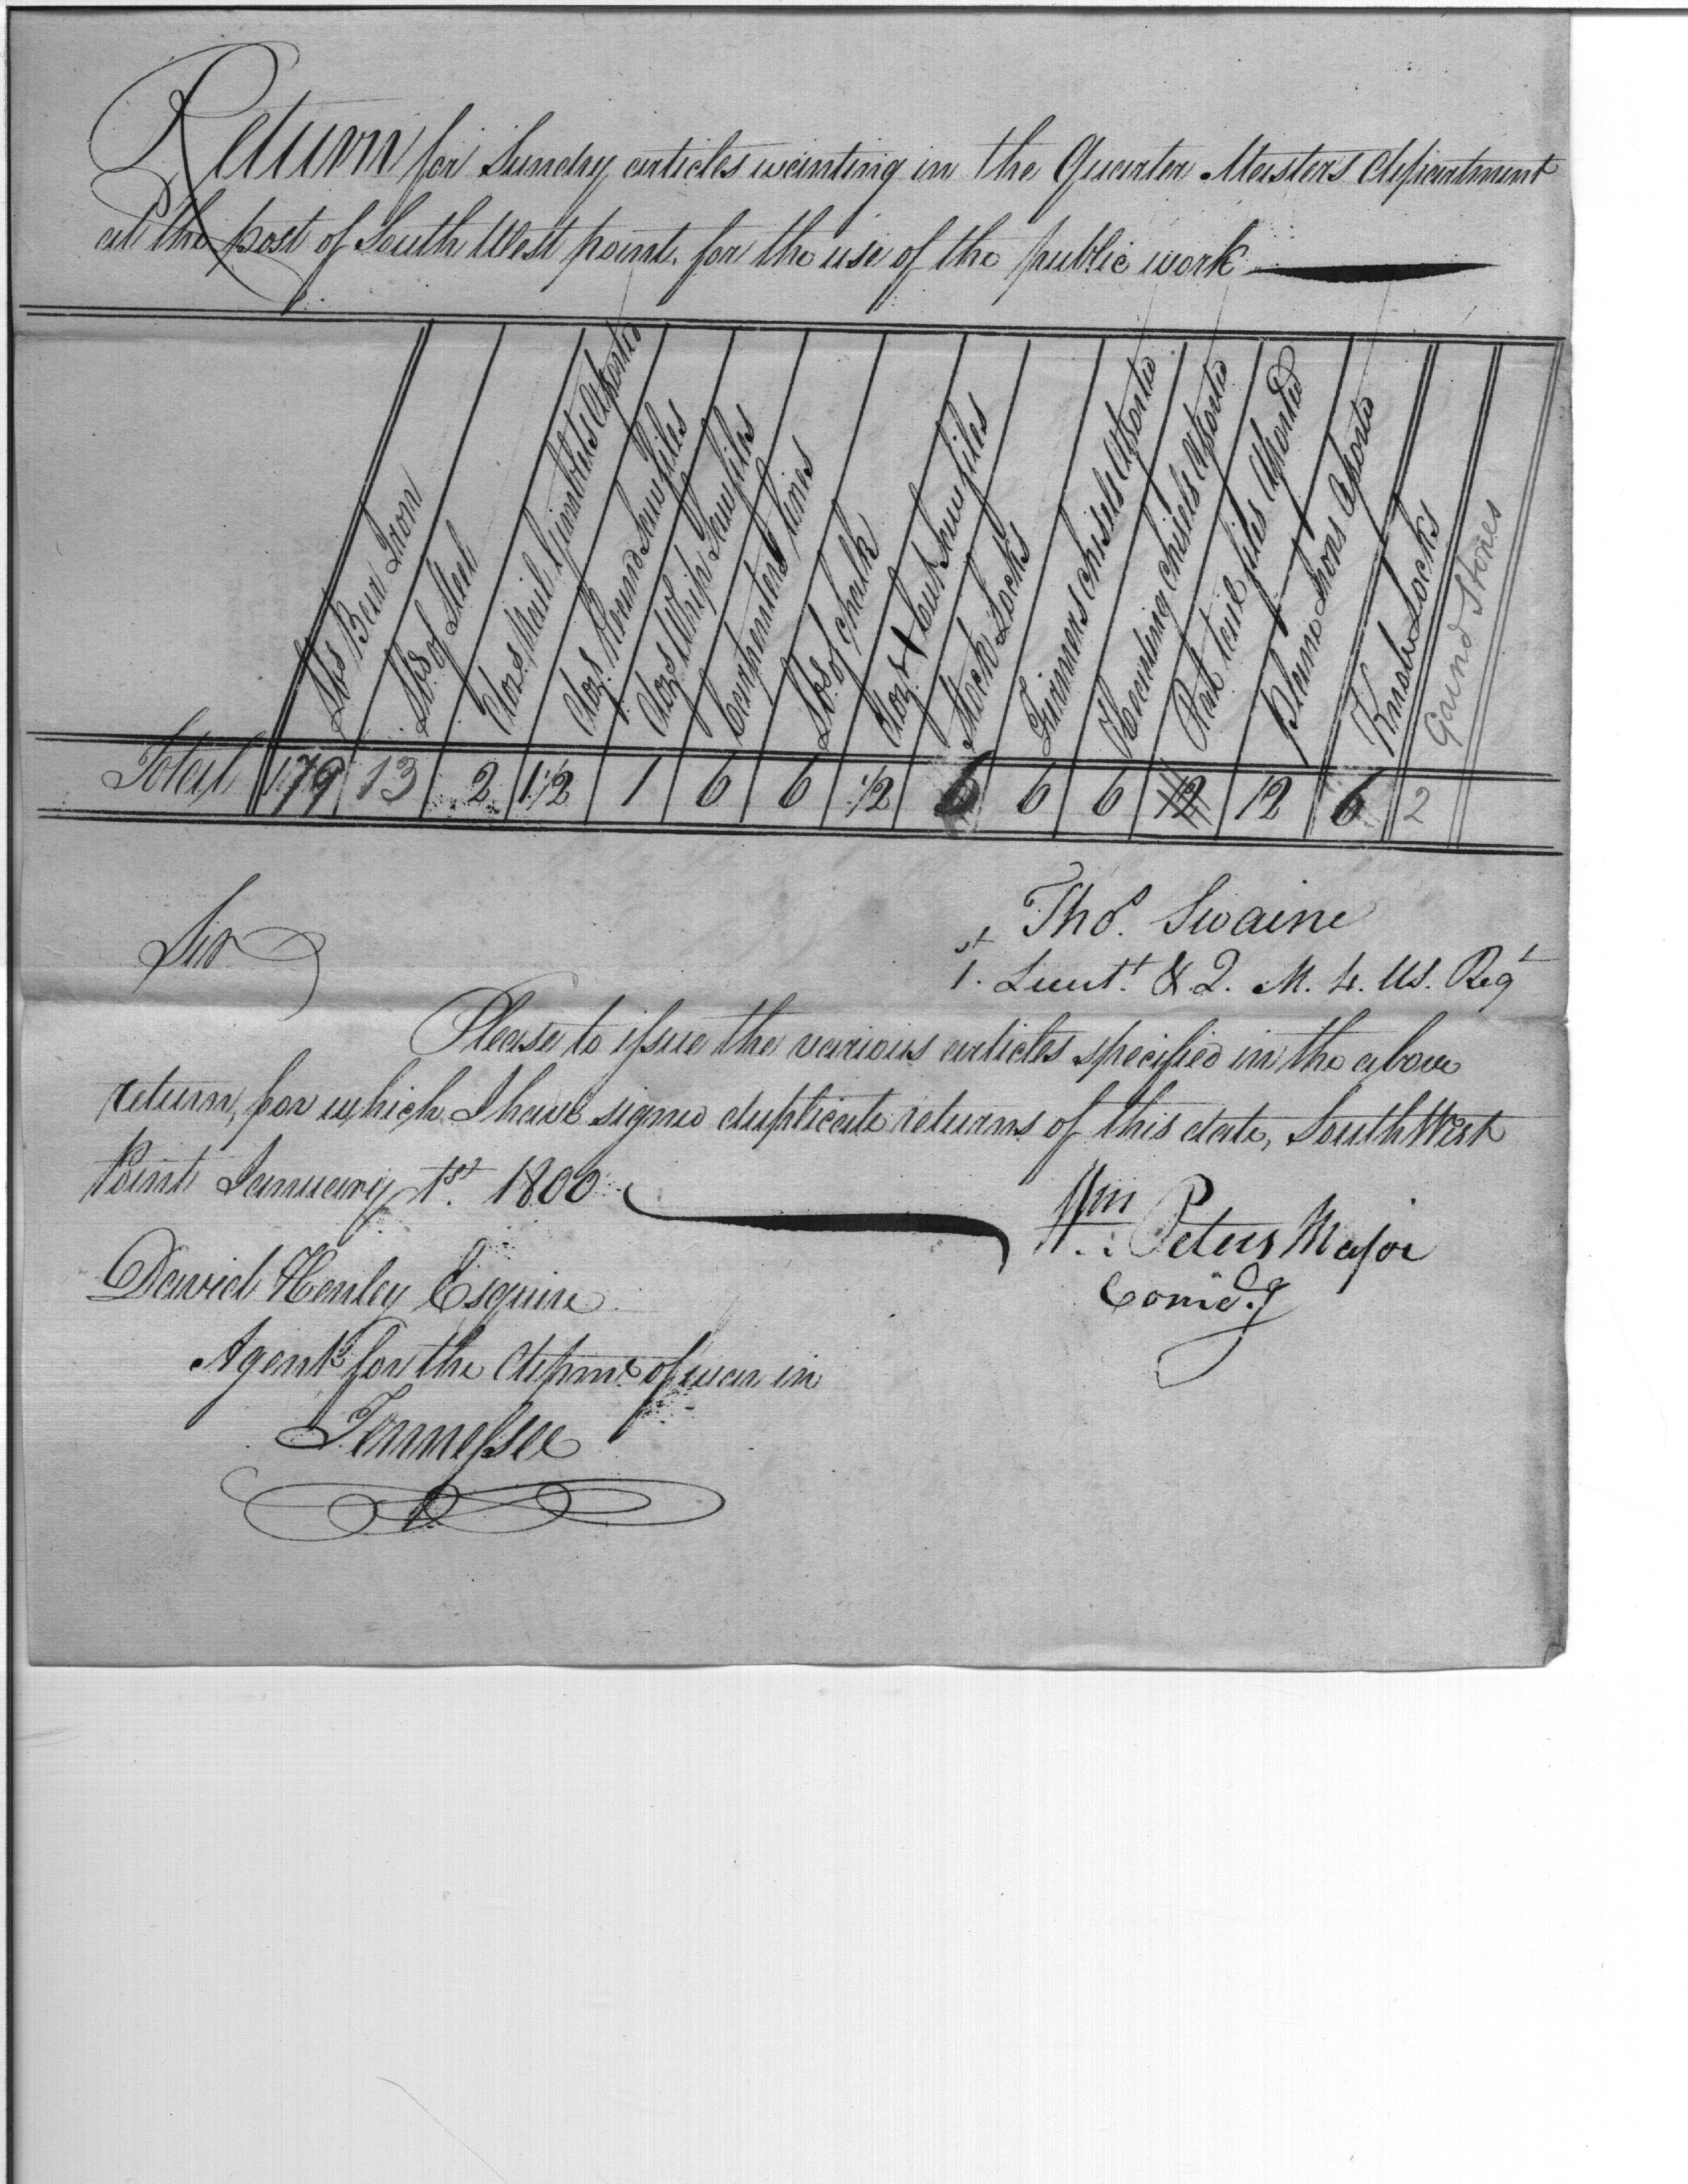 Return for Sundry articles wanting in the Quarter Masters department
at the post of South West point for the use of the public work
lbs Bar Iron
lbs of Steel
doz Nail Gimblets assorted
doz Round Saw files
doz Whip Saw files
Carpenters lines
lbs of chalk
doz X Cut Saw files
Stock Locks
Firmers chisels assorted
Heading chisels assorted
Rat tail files assorted
plain Irons assorted
Knob Locks
Grind Stones
Total 179 13 2 1 1/2 1 6 6 1/2 6 6 6 12 12 6 2
Thos. Swaine
1st Lieut. & Q. M. 4. US. Regt
Sir
Please to issue the various articles specified in the above
return, for which I have signed duplicate returns of this date, South West
Point January 1st. 1800
Wm Peters Major
Comdg
David Henley Esquire
Agent for the depmt of war in
Tennessee